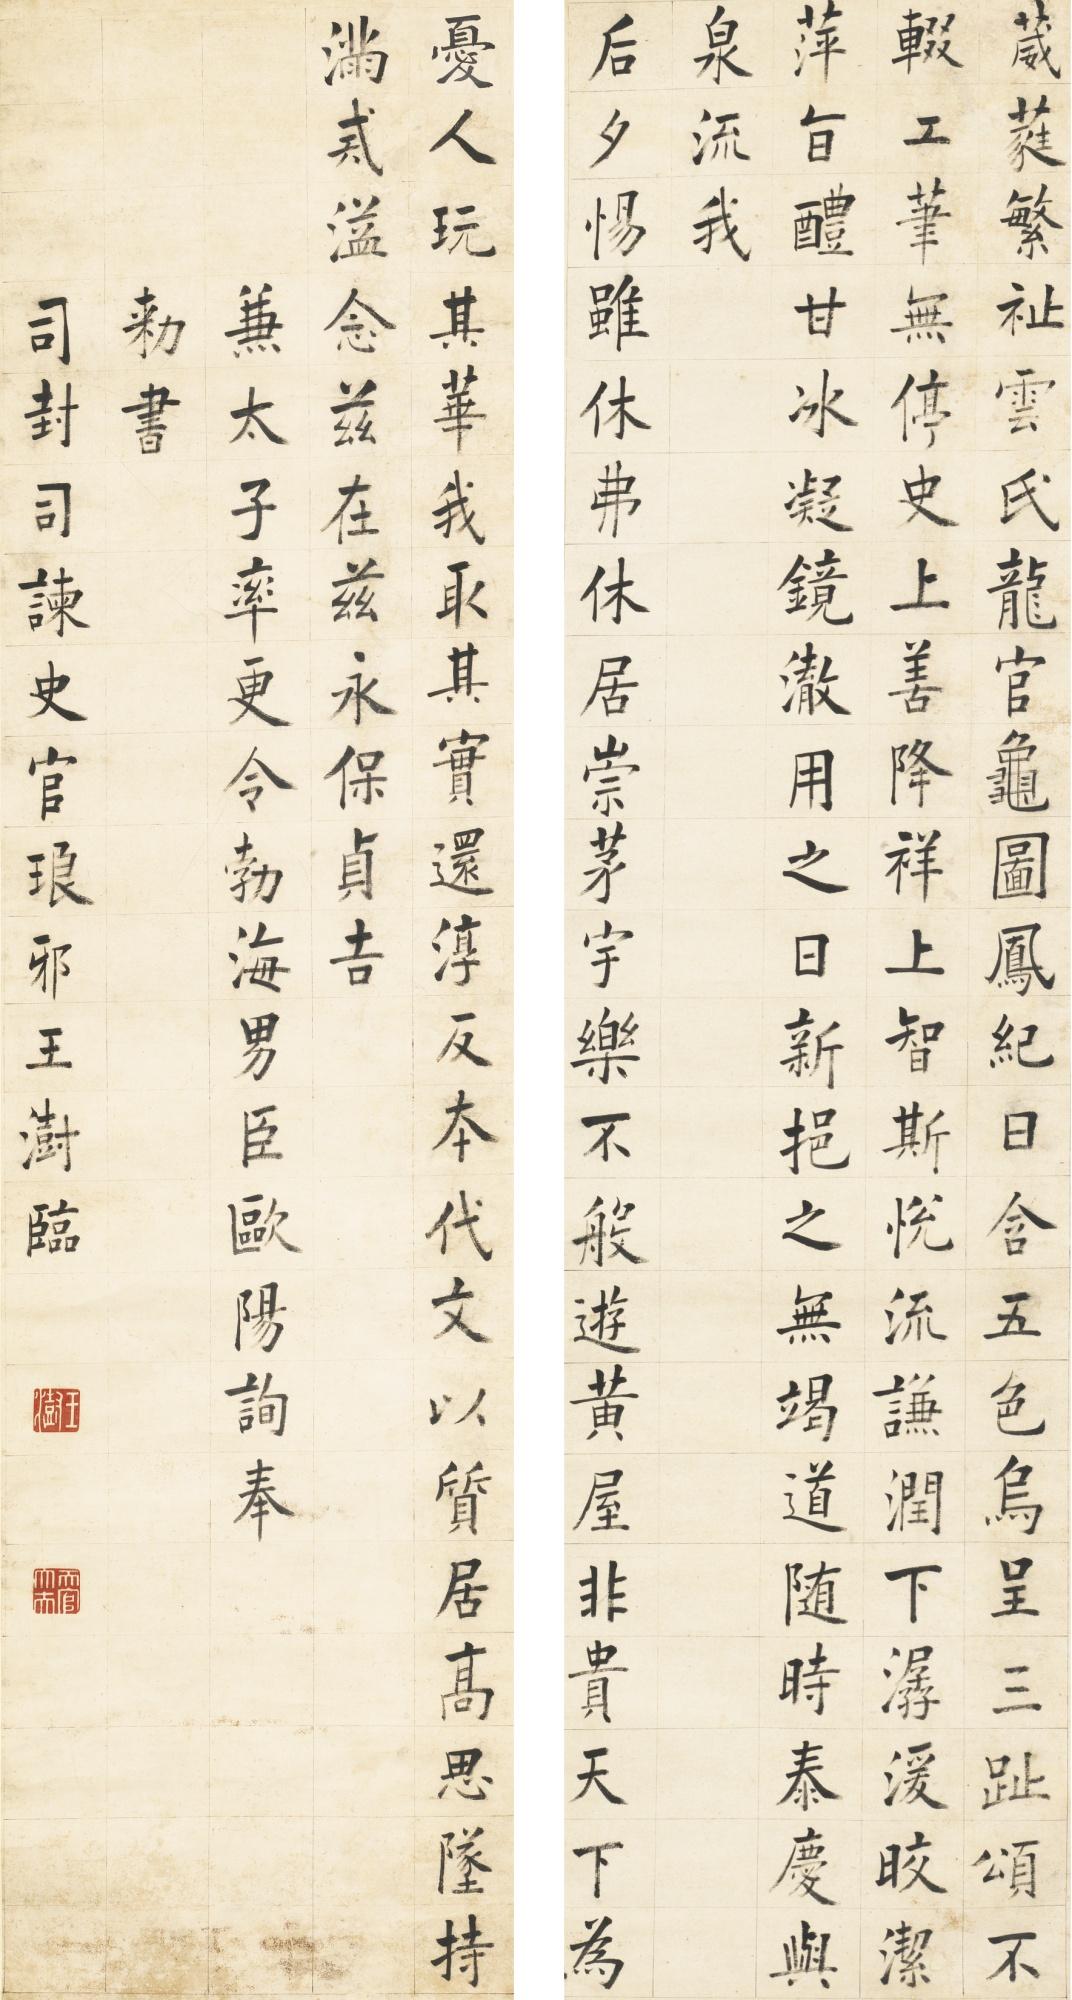 葳蕤繁祉雲氏龍官龜圖鳳紀日含五色烏呈三趾頌不
輟工筆無停史上善降祥上智斯悅流謙潤下潺湲皎潔
萍旨醴甘冰凝鏡澈用之日新挹之無竭道随時泰慶與
泉流我
后夕惕雖休弗休居崇茅宇樂不般遊黃屋非貴天下為
憂人玩其華我取其實還淳反本代文以質居高思墜持
滿戒溢念茲在茲永保貞吉
兼太子率更令勃海男臣歐陽詢奉
勑書
司封司諫史官琅邪王澍臨
王澍